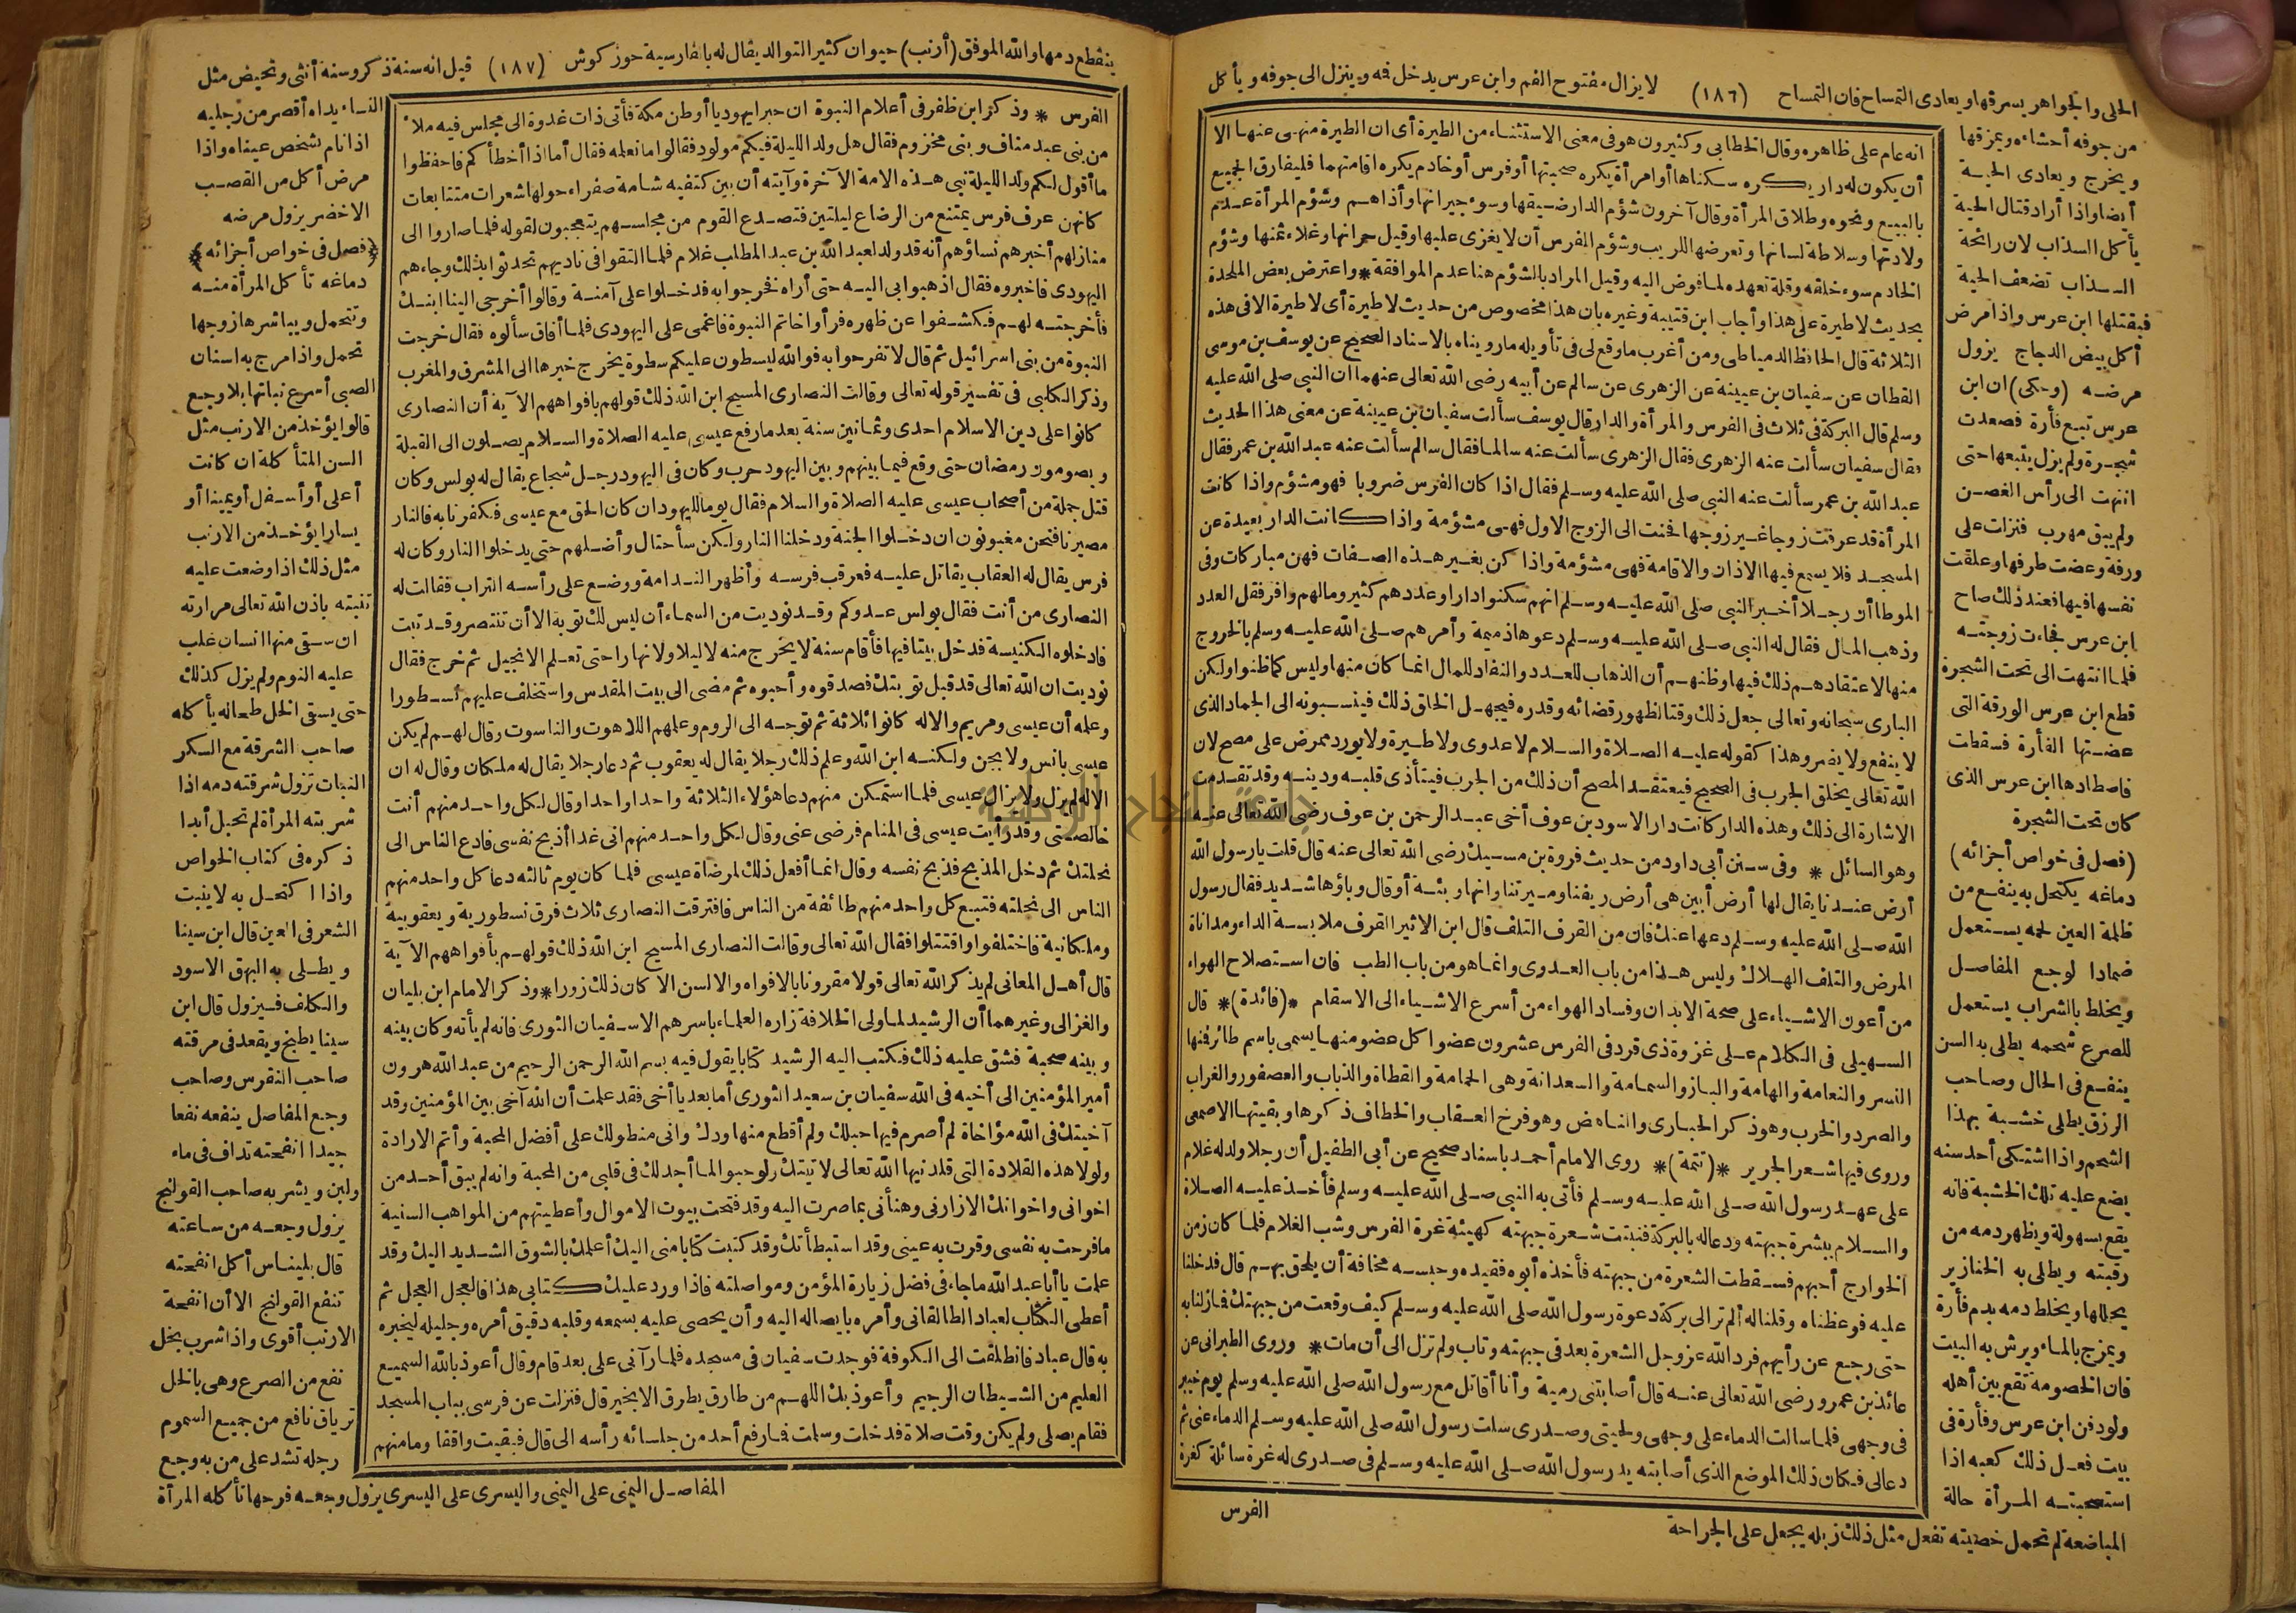 الحلى والجواهر يسرقها ويعادى التمساح فان التمساح (١٨٦) لايزال مفتوح الفم وابن عرس يدخل فمه وينزل الى جوفه ويأكل
من جوفه أحشاءه ويمزقها
ويخرج ويعادى الحيـة
أيضا واذا أراد قتال الحية
يأكل السذاب لان رائحة
السـذاب تضعف الحية
فيقتلها ابن عرس واذا مرض
أكل بيض الدجاج يزول
مرضـه (وحكى) ان ابن
عرس تبع فأرة فصعدت
شجـرة ولم يزل يتبعها حتى
انتهت الى رأس الغصـن
ولم يبق مهرب فنزلت على
ورقة وعضت طرفها وعلقت
نفسها فيها فعند ذلك صاح
ابن عرس فجاءت زوجتـه
فلما انتهت الى تحت الشجرة
قطع ابن عرس الورقة التى
عضـتها الفأرة فسقطت
فاصطادها ابن عرس الذى
كان تحت الشجرة
(فصل فى خواص أجزائه)
دماغه يكتحل به ينفـع من
ظلمة العين لحمه يستعمل
ضمادا لوجع المفاصل
ويخلط بالشراب يستعمل
للصرع شحمه يطلى به السن
ينفـع فى الحال وصاحب
الرزق يطلى خشـبة بهذا
الشحم واذا اشتكى أحد سنه
يضع عليه تلك الخشبة فانه
يقع بسهولة ويظهر دمه من
رقبته ويطلى به الخنازير
يحللها ويخلط دمه بدم فأرة
ويمزج بالماء ويرش به البيت
فان الخصومة تقع بين أهله
ولو دفن ابن عرس وفأرة فى
بيت فعـل ذلك كعبه اذا
استصحبته المرأة حالة
المباضعة لم تحمل خصيته تفعل مثل ذلك زبله يجعل على الجراحة
انه عام على ظاهره وقال الخطابى وكثيرون هو فى معنى الاستثناء من الطيرة أى ان الطيرة منهى عنها الا
أن يكون له دار يكره سكناها أو امرأة يكره صحبتها أو فرس أو خادم يكره اقامتهما فليفارق الجميع
بالبيع ونحوه وطلاق المرأة وقال آخرون شؤم الدار ضيقها وسوء جيرانها وأذاهم وشؤم المرأة عدم
ولادتها وسلاطة لسانها وتعرضها للريب وشؤم الفرس أن لا يغزى عليها وقيل حرانها وغلاء ثمنها وشؤم
الخادم سوء خلقه وقلة تعهده لما فوض اليه وقيل المراد بالشؤم هنا عدم الموافقة * واعترض بعض الملحدة
بحديث لا طيرة على هذا وأجاب ابن قتيبة وغيره بان هذا مخصوص من حديث لا طيرة أى لا طيرة الا فى هذه
الثلاثة قال الحافظ الدمياطى ومن أغرب ما وقع لى فى تأويله ما رويناه بالاسناد الصحيح عن يوسف بن موسى
القطان عن سفيان بن عيينة عن الزهرى عن سالم عن أبيه رضى الله تعالى عنهما ان النبى صلى الله عليه
وسلم قال البركة فى ثلاث فى الفرس والمرأة والدار قال يوسف سألت سفيان بن عيينة عن معنى هذا الحديث
فقال سفيان سألت عنه الزهرى فقال الزهرى سألت عنه سالما فقال سالم سألت عنه عبد الله بن عمر فقال
عبد الله بن عمر سألت عنه النبى صلى الله عليه وسلم فقال اذا كان الفرس ضروبا فهو مشؤم واذا كانت
المرأة قد عرفت زوجا غير زوجها فحنت الى الزوج الاول فهى مشؤمة واذا كانت الدار بعيدة عن
المسجد فلا يسمع فيها الاذان والاقامة فهى مشؤمة واذا كن بغير هذه الصفات فهن مباركات وفى
الموطا أن رجلا أخبر النبى صلى الله عليه وسلم انهم سكنوا دارا وعددهم كثير ومالهم وافر فقل العدد
وذهب المال فقال له النبى صلى الله عليه وسلم دعوها ذميمة وأمرهم صلى الله عليه وسلم بالخروج
منها لاعتقادهم ذلك فيها وظنهم أن الذهاب للعدد والنفاد للمال انما كان منها وليس كما ظنوا ولكن
البارى سبحانه وتعالى جعل ذلك وقتا لظهور قضائه وقدره فيجهل الخلق ذلك فينسبونه الى الجماد الذى
لا ينفع ولا يضر وهذا كقوله عليه الصلاة والسلام لا عدوى ولا طيرة ولا يورد ممرض على مصح لان
الله تعالى يخلق الجرب فى الصحيح فيعتقد المصح أن ذلك من الجرب فيتأذى قلبه ودينه وقد تقدمت
الاشارة الى ذلك وهذه الدار كانت دار الاسود بن عوف أخى عبد الرحمن بن عوف رضى الله تعالى عنه
وهو السائل * وفى سنن أبى داود من حديث فروة بن مسيك رضى الله تعالى عنه قال قلت يا رسول الله
أرض عندنا يقال لها أرض أبين هى أرض ريفنا وميرتنا وانها وبئة أو قال وباؤها شديد فقال رسول
الله صلى الله عليه وسلم دعها عنك فان من القرف التلف قال ابن الاثير القرف ملابسة الداء ومداناة
المرض والتلف الهلاك وليس هذا من باب العدوى وانما هو من باب الطب فان استصلاح الهواء
من أعون الاشياء على صحة الابدان وفساد الهواء من أسرع الاشياء الى الاسقام *(فائدة)* قال
السهيلى فى الكلام على غزوة ذى قرد فى الفرس عشرون عضوا كل عضو منها يسمى باسم طائر فمنها
النسر والنعامة والهامة والباز والسمامة والسعدانة وهى الحمامة والقطاة والذباب والعصفور والغراب
والصرد والخرب وهو ذكر الحبارى والناهض وهو فرخ العقاب والخطاف ذكرها وبقيتها الاصمعى
وروى فيها شعر الجرير *(تتمة)* روى الامام أحمد باسناد صحيح عن أبى الطفيل أن رجلا ولد له غلام
على عهد رسول الله صلى الله عليه وسلم فأتى به النبى صلى الله عليه وسلم فأخذ عليه الصلاة
والسلام ببشرة جبهته ودعا له بالبركة فنبتت شعرة جبهته كهيئة غرة الفرس وشب الغلام فلما كان زمن
الخوارج أحبهم فسقطت الشعرة من جبهته فأخذه أبوه فقيده وحبسه مخافة أن يلحق بهم قال فدخلنا
عليه فوعظناه وقلنا له ألم تر الى بركة دعوة رسول الله صلى الله عليه وسلم كيف وقعت من جبهتك فما زلنا به
حتى رجع عن رأيهم فرد الله عز وجل الشعرة بعد فى جبهته وتاب ولم تزل الى أن مات * وروى الطبرانى عن
عائذ بن عمرو رضى الله تعالى عنه قال أصابتنى رمية وأنا أقاتل مع رسول الله صلى الله عليه وسلم يوم خيبر
فى وجهى فلما سالت الدماء على وجهى ولحيتى وصدرى سلت رسول الله صلى الله عليه وسلم الدماء عنى ثم
دعا لى فكان ذلك الموضع الذى أصابته يد رسول الله صلى الله عليه وسلم فى صدرى له غرة سائلة كغرة
الفرس
ينقطع دمها والله الموفق (أرنب) حيوان كثير التوالد يقال له بالفارسية خوز كوش (١٨٧) قيل انه سنة ذكر وسنة أنثى وتحيض مثل
الفرس * وذكر ابن ظفر فى أعلام النبوة ان حبرا يهوديا أوطن مكة فأتى ذات غدوة الى مجلس فيه ملأ
من بنى عبد مناف وبنى مخزوم فقال هل ولد الليلة فيكم مولود فقالوا ما نعلمه فقال أما اذا أخطأكم فاحفظوا
ما أقول لكم ولد الليلة نبى هذه الامة الآخرة وآيته أن بين كتفيه شامة صفراء حولها شعرات متتابعات
كانهن عرف فرس يمتنع من الرضاع ليلتين فتصدع القوم من مجالسهم يتعجبون لقوله فلما صاروا الى
منازلهم أخبرهم نساؤهم أنه قد ولد لعبد الله بن عبد المطلب غلام فلما التقوا فى ناديهم تحدثوا بذلك وجاءهم
اليهودى فاخبروه فقال اذهبوا بى اليه حتى أراه فخرجوا به فدخلوا على آمنة وقالوا أخرجى الينا ابنك
فأخرجته لهم فكشفوا عن ظهره فرأوا خاتم النبوة فاغمى على اليهودى فلما أفاق سألوه فقال خرجت
النبوة من بنى اسرائيل ثم قال لا تفرحوا به فوالله ليسطون عليكم سطوة يخرج خبرها الى المشرق والمغرب
وذكر الكلبى فى تفسير قوله تعالى وقالت النصارى المسيح ابن الله ذلك قولهم بافواههم الآية أن النصارى
كانوا على دين الاسلام احدى وثمانين سنة بعد ما رفع عيسى عليه الصلاة والسلام يصلون الى القبلة
ويصومون رمضان حتى وقع فيما بينهم وبين اليهود حرب وكان فى اليهود رجل شجاع يقال له بولس وكان
قتل جملة من أصحاب عيسى عليه الصلاة والسلام فقال يوما لليهود ان كان الحق مع عيسى فكفرنا به فالنار
مصيرنا فنحن مغبونون ان دخلوا الجنة ودخلنا النار ولكن سأحتال وأضلهم حتى يدخلوا النار وكان له
فرس يقال له العقاب يقاتل عليه فعرقب فرسه وأظهر الندامة ووضع على رأسه التراب فقالت له
النصارى من أنت فقال بولس عدوكم وقد نوديت من السماء أن ليس لك توبة الا أن تتنصر وقد تبت
فادخلوه الكنيسة فدخل بيتا فيها فأقام سنة لا يخرج منه لا ليلا ولا نهارا حتى تعلم الانجيل ثم خرج فقال
نوديت ان الله تعالى قد قبل توبتك فصدقوه وأحبوه ثم مضى الى بيت المقدس واستخلف عليهم نسطورا
وعلمه أن عيسى ومريم والاله كانوا ثلاثة ثم توجه الى الروم وعلمهم اللاهوت والناسوت وقال لهم لم يكن
عيسى بانس ولا بجن ولكنه ابن الله وعلم ذلك رجلا يقال له يعقوب ثم دعا رجلا يقال له ملكان وقال له ان
الاله لم يزل ولا يزال عيسى فلما استمكن منهم دعا هؤلاء الثلاثة واحدا واحدا وقال لكل واحد منهم أنت
خالصتى وقد رأيت عيسى فى المنام فرضى عنى وقال لكل واحد منهم انى غدا أذبح نفسى فادع الناس الى
نحلتك ثم دخل المذبح فذبح نفسه وقال انما أفعل ذلك لمرضاة عيسى فلما كان يوم ثالثه دعا كل واحد منهم
الناس الى نحلته فتبع كل واحد منهم طائفة من الناس فافترقت النصارى ثلاث فرق نسطورية ويعقوبية
وملكانية فاختلفوا واقتتلوا فقال الله تعالى وقالت النصارى المسيح ابن الله ذلك قولهم بأفواههم الآية
قال أهل المعانى لم يذكر الله تعالى قولا مقرونا بالافواه والالسن الا كان ذلك زورا * وذكر الامام ابن بليان
والغزالى وغيرهما أن الرشيد لما ولى الخلافة زاره العلماء باسرهم الا سفيان الثورى فانه لم يأته وكان بينه
وبينه صحبة فشق عليه ذلك فكتب اليه الرشيد كتابا يقول فيه بسم الله الرحمن الرحيم من عبد الله هرون
أمير المؤمنين الى أخيه فى الله سفيان بن سعيد الثورى أما بعد يا أخى فقد علمت أن الله آخى بين المؤمنين وقد
آخيتك فى الله مؤاخاة لم أصرم فيها حبلك ولم أقطع منها ودك وانى منطو لك على أفضل المحبة وأتم الارادة
ولولا هذه القلادة التى قلدنيها الله تعالى لاتيتك ولو حبوا لما أجد لك فى قلبى من المحبة وانه لم يبق أحد من
اخوانى واخوانك الا زارنى وهنأنى بما صرت اليه وقد فتحت بيوت الاموال وأعطيتهم من المواهب السنية
ما فرحت به نفسى وقرت به عينى وقد استبطأتك وقد كتبت كتابا منى اليك أعلمك بالشوق الشديد اليك وقد
علمت يا أبا عبد الله ما جاء فى فضل زيارة المؤمن ومواصلته فاذا ورد عليك كتابى هذا فالعجل العجل ثم
أعطى الكتاب لعباد الطالقانى وأمره بايصاله اليه وأن يحصى عليه بسمعه وقلبه دقيق أمره وجليله ليخبره
به قال عباد فانطلقت الى الكوفة فوجدت سفيان فى مسجده فلما رآنى على بعد قام وقال أعوذ بالله السميع
العليم من الشيطان الرجيم وأعوذ بك اللهم من طارق يطرق الا بخير قال فنزلت عن فرسى بباب المسجد
فقام يصلى ولم يكن وقت صلاة فدخلت وسلمت فما رفع أحد من جلسائه رأسه الى قال فبقيت واقفا وما منهم
النساء يداه أقصر من رجليه
اذا نام تشخص عيناه واذا
مرض أكل من القصـب
الاخضر يزول مرضه
﴿فصل فى خواص أجزائه﴾
دماغه تأكل المرأة منـه
وتتحمل ويباشرها زوجها
تحمل واذا مرج به اسنان
الصبى أسرع نباتها بلا وجع
قالوا يؤخذ من الارنب مثل
السن المتأكلة ان كانت
أعلى أو أسفل أو يمينا أو
يسارا يؤخذ من الارنب
مثل ذلك اذا وضعت عليه
تفتته باذن الله تعالى مرارته
ان سقى منها انسان غلب
عليه النوم ولم يزل كذلك
حتى يسقى الخل طحاله يأكله
صاحب الشرقة مع السكر
النبات تزول شرقته دمه اذا
شربته المرأة لم تحبل أبدا
ذكره فى كتاب الخواص
واذا اكتحل به لا ينبت
الشعر فى العين قال ابن سينا
ويطلى به البهق الاسود
والكلف فيزول قال ابن
سينا يطبخ ويقعد فى مرقته
صاحب النقرس وصاحب
وجع المفاصل ينفعه نفعا
جيدا انفحته تداف فى ماء
ولبن ويشربه صاحب القولنج
يزول وجعه من ساعته
قال بليناس أكل انفحته
تنفع القولنج الا أن انفحة
الارنب أقوى واذا شرب بخل
نفع من الصرع وهى بالخل
ترياق نافع من جميع السموم
رجله تشد على من به وجع
المفاصل اليمنى على اليمنى واليسرى على اليسرى يزول وجعه فرجها تأكله المرأة
جامعة النجاح الوطنية